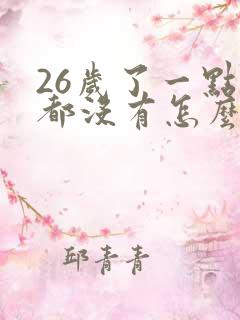 26歲了一點
都沒有怎麼
邱青青